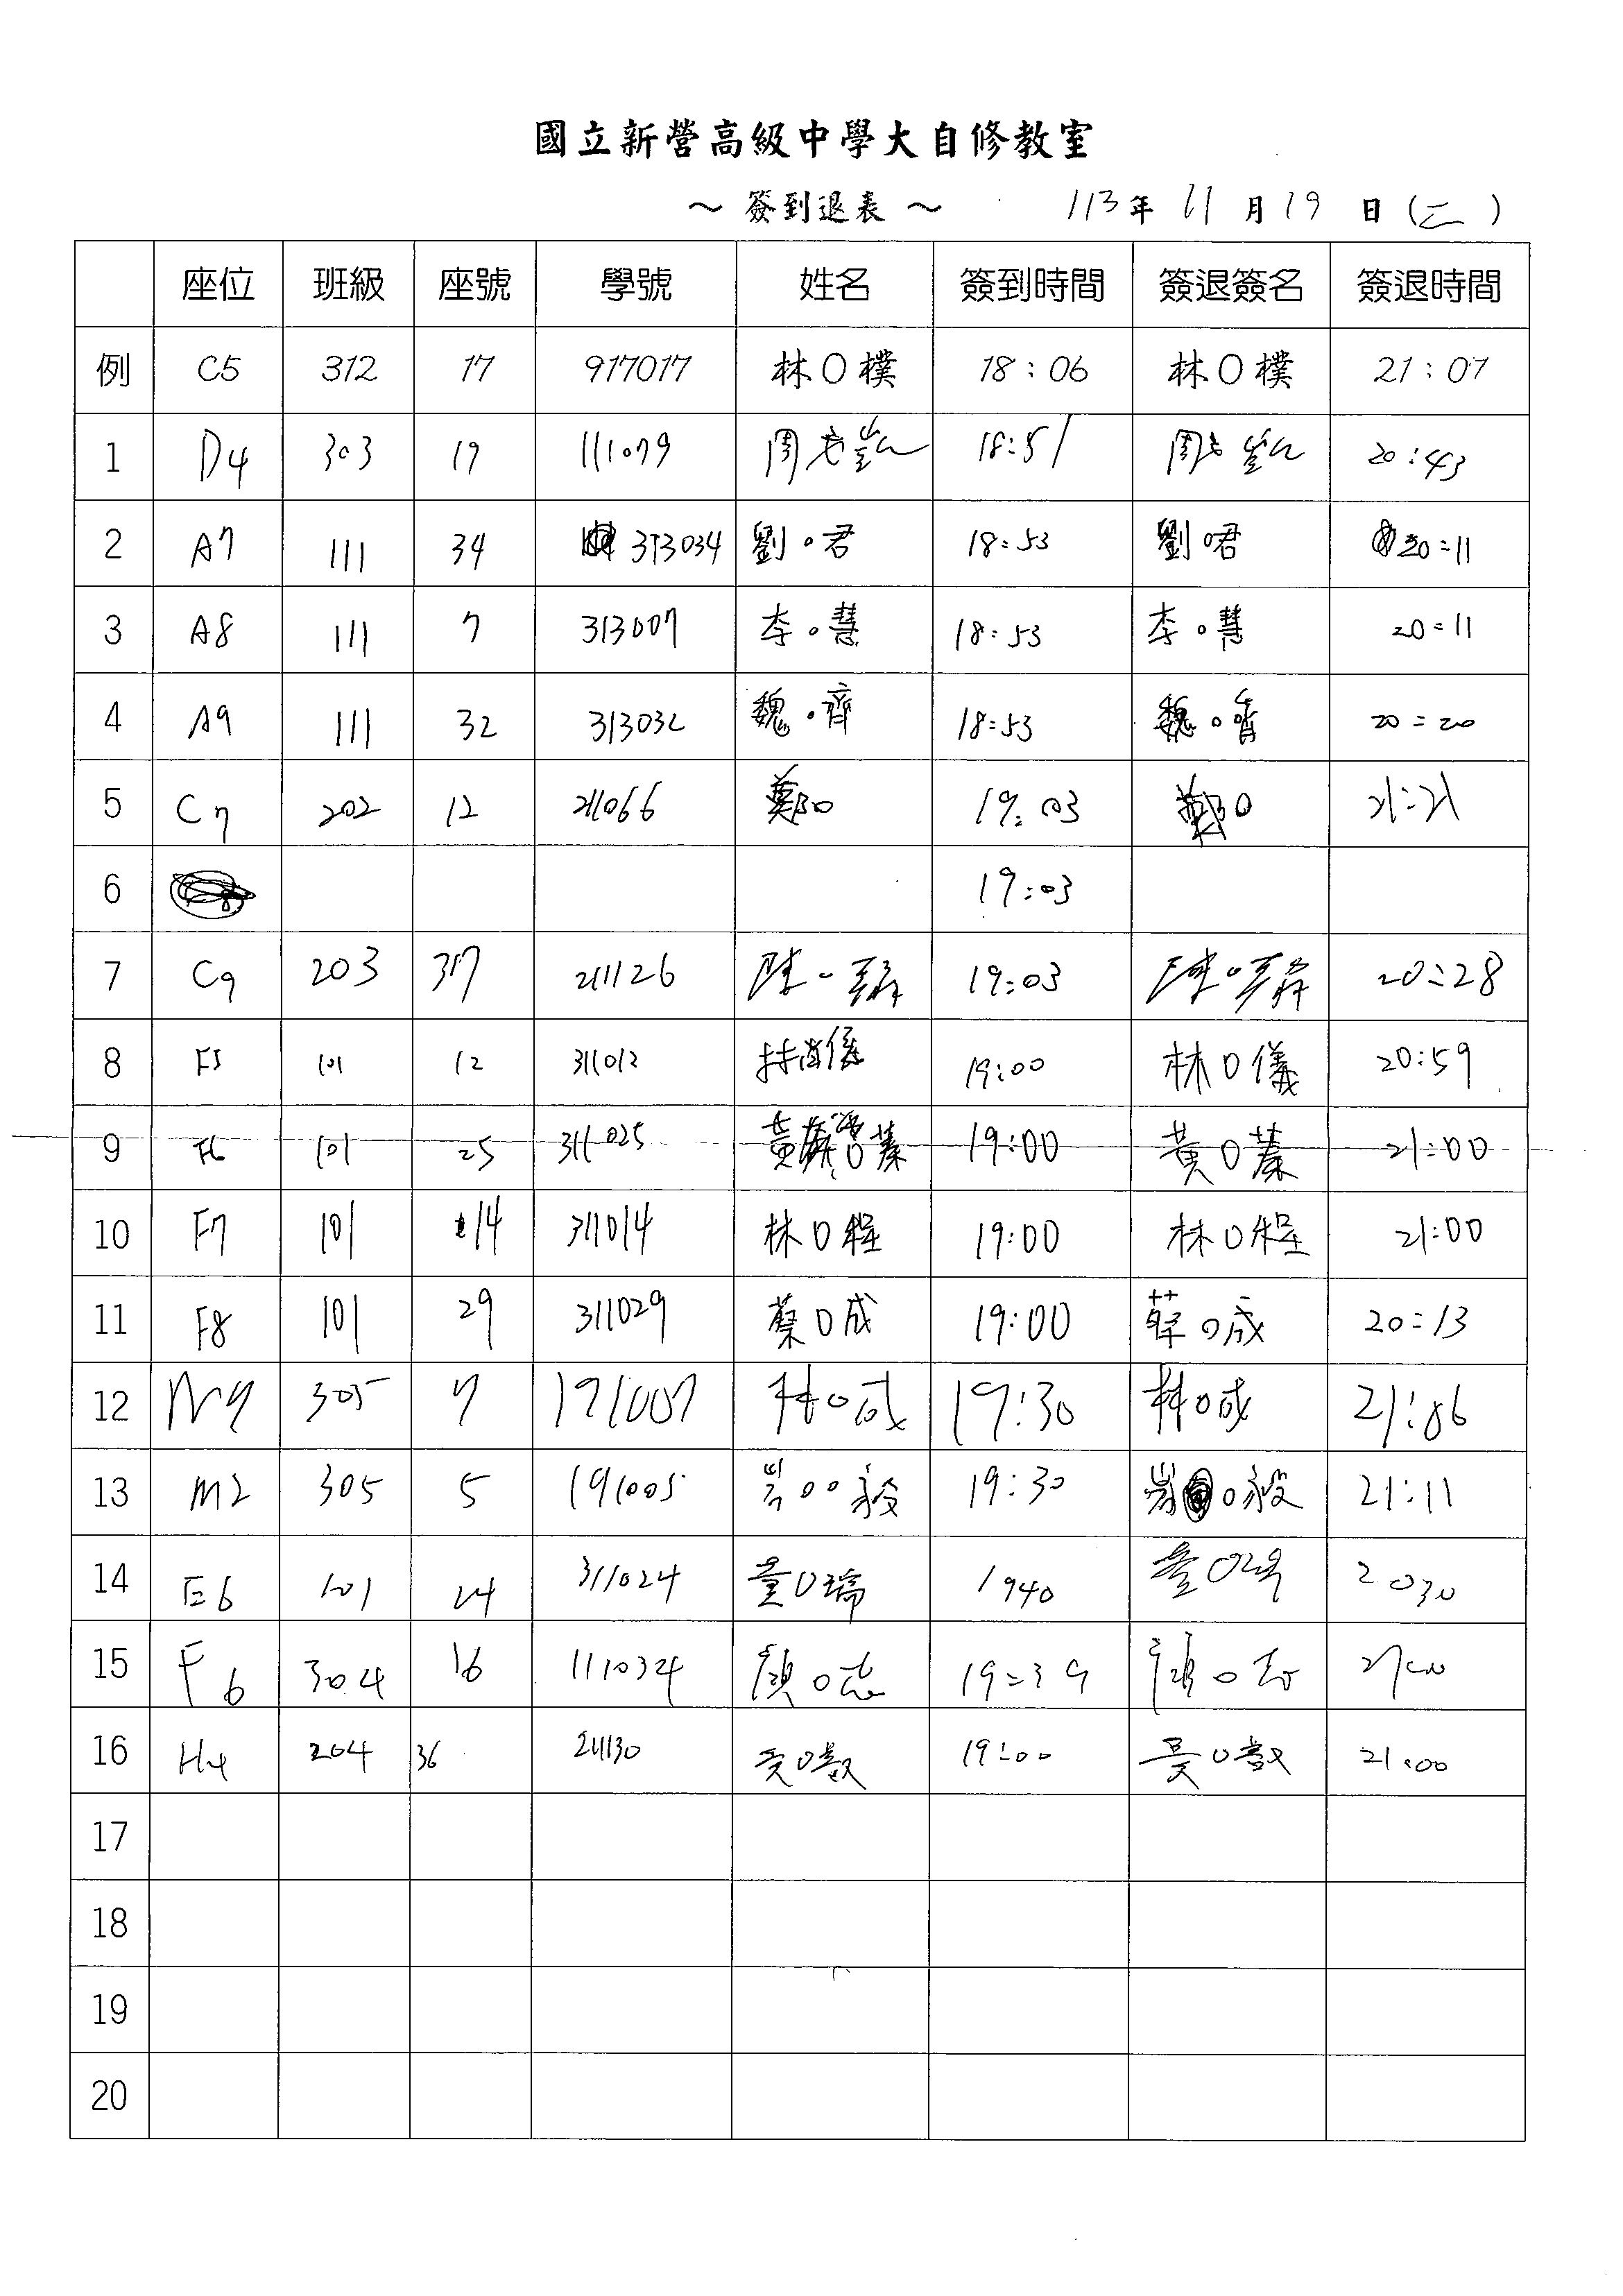 國立新營高級中學大自修教室
～ 簽到退表 ～ 113年 11月19日(二)
座位 班級 座號 學號 姓名 簽到時間 簽退簽名 簽退時間
例 C5 312 17 917017 林○樸 18:06 林○樸 21:07
1 D4 303 19 111079 周 18:51 周 20:43
2 A7 111 34 313034 劉。君 18:53 劉。君 20:11
3 A8 111 7 313007 李。慧 18:53 李。慧 20:11
4 A9 111 32 313032 魏。齊 18:53 魏。齊 20:20
5 C7 202 12 211066 鄭○ 19:03 鄭○ 21:21
6 19:03
7 C9 203 37 211126 陳 19:03 陳 20:28
8 F5 101 12 311012 林 儀 19:00 林○儀 20:59
9 F6 101 25 311025 黃○蓁 19:00 黃○蓁 21:00
10 F7 101 14 311014 林○程 19:00 林○程 21:00
11 F8 101 29 311029 蔡○成 19:00 蔡○成 20:13
12 305 7 191007 林○成 19:30 林○成 21:06
13 M2 305 5 191005 ○○毅 19:30 ○毅 21:11
14 E6 101 24 311024 童○瑞 1940 童○ 2030
15 F6 304 16 111034 顏○志 19:39 顏○志
16 H4 204 36 211130 19:00 吳○ 21:00
17
18
19
20